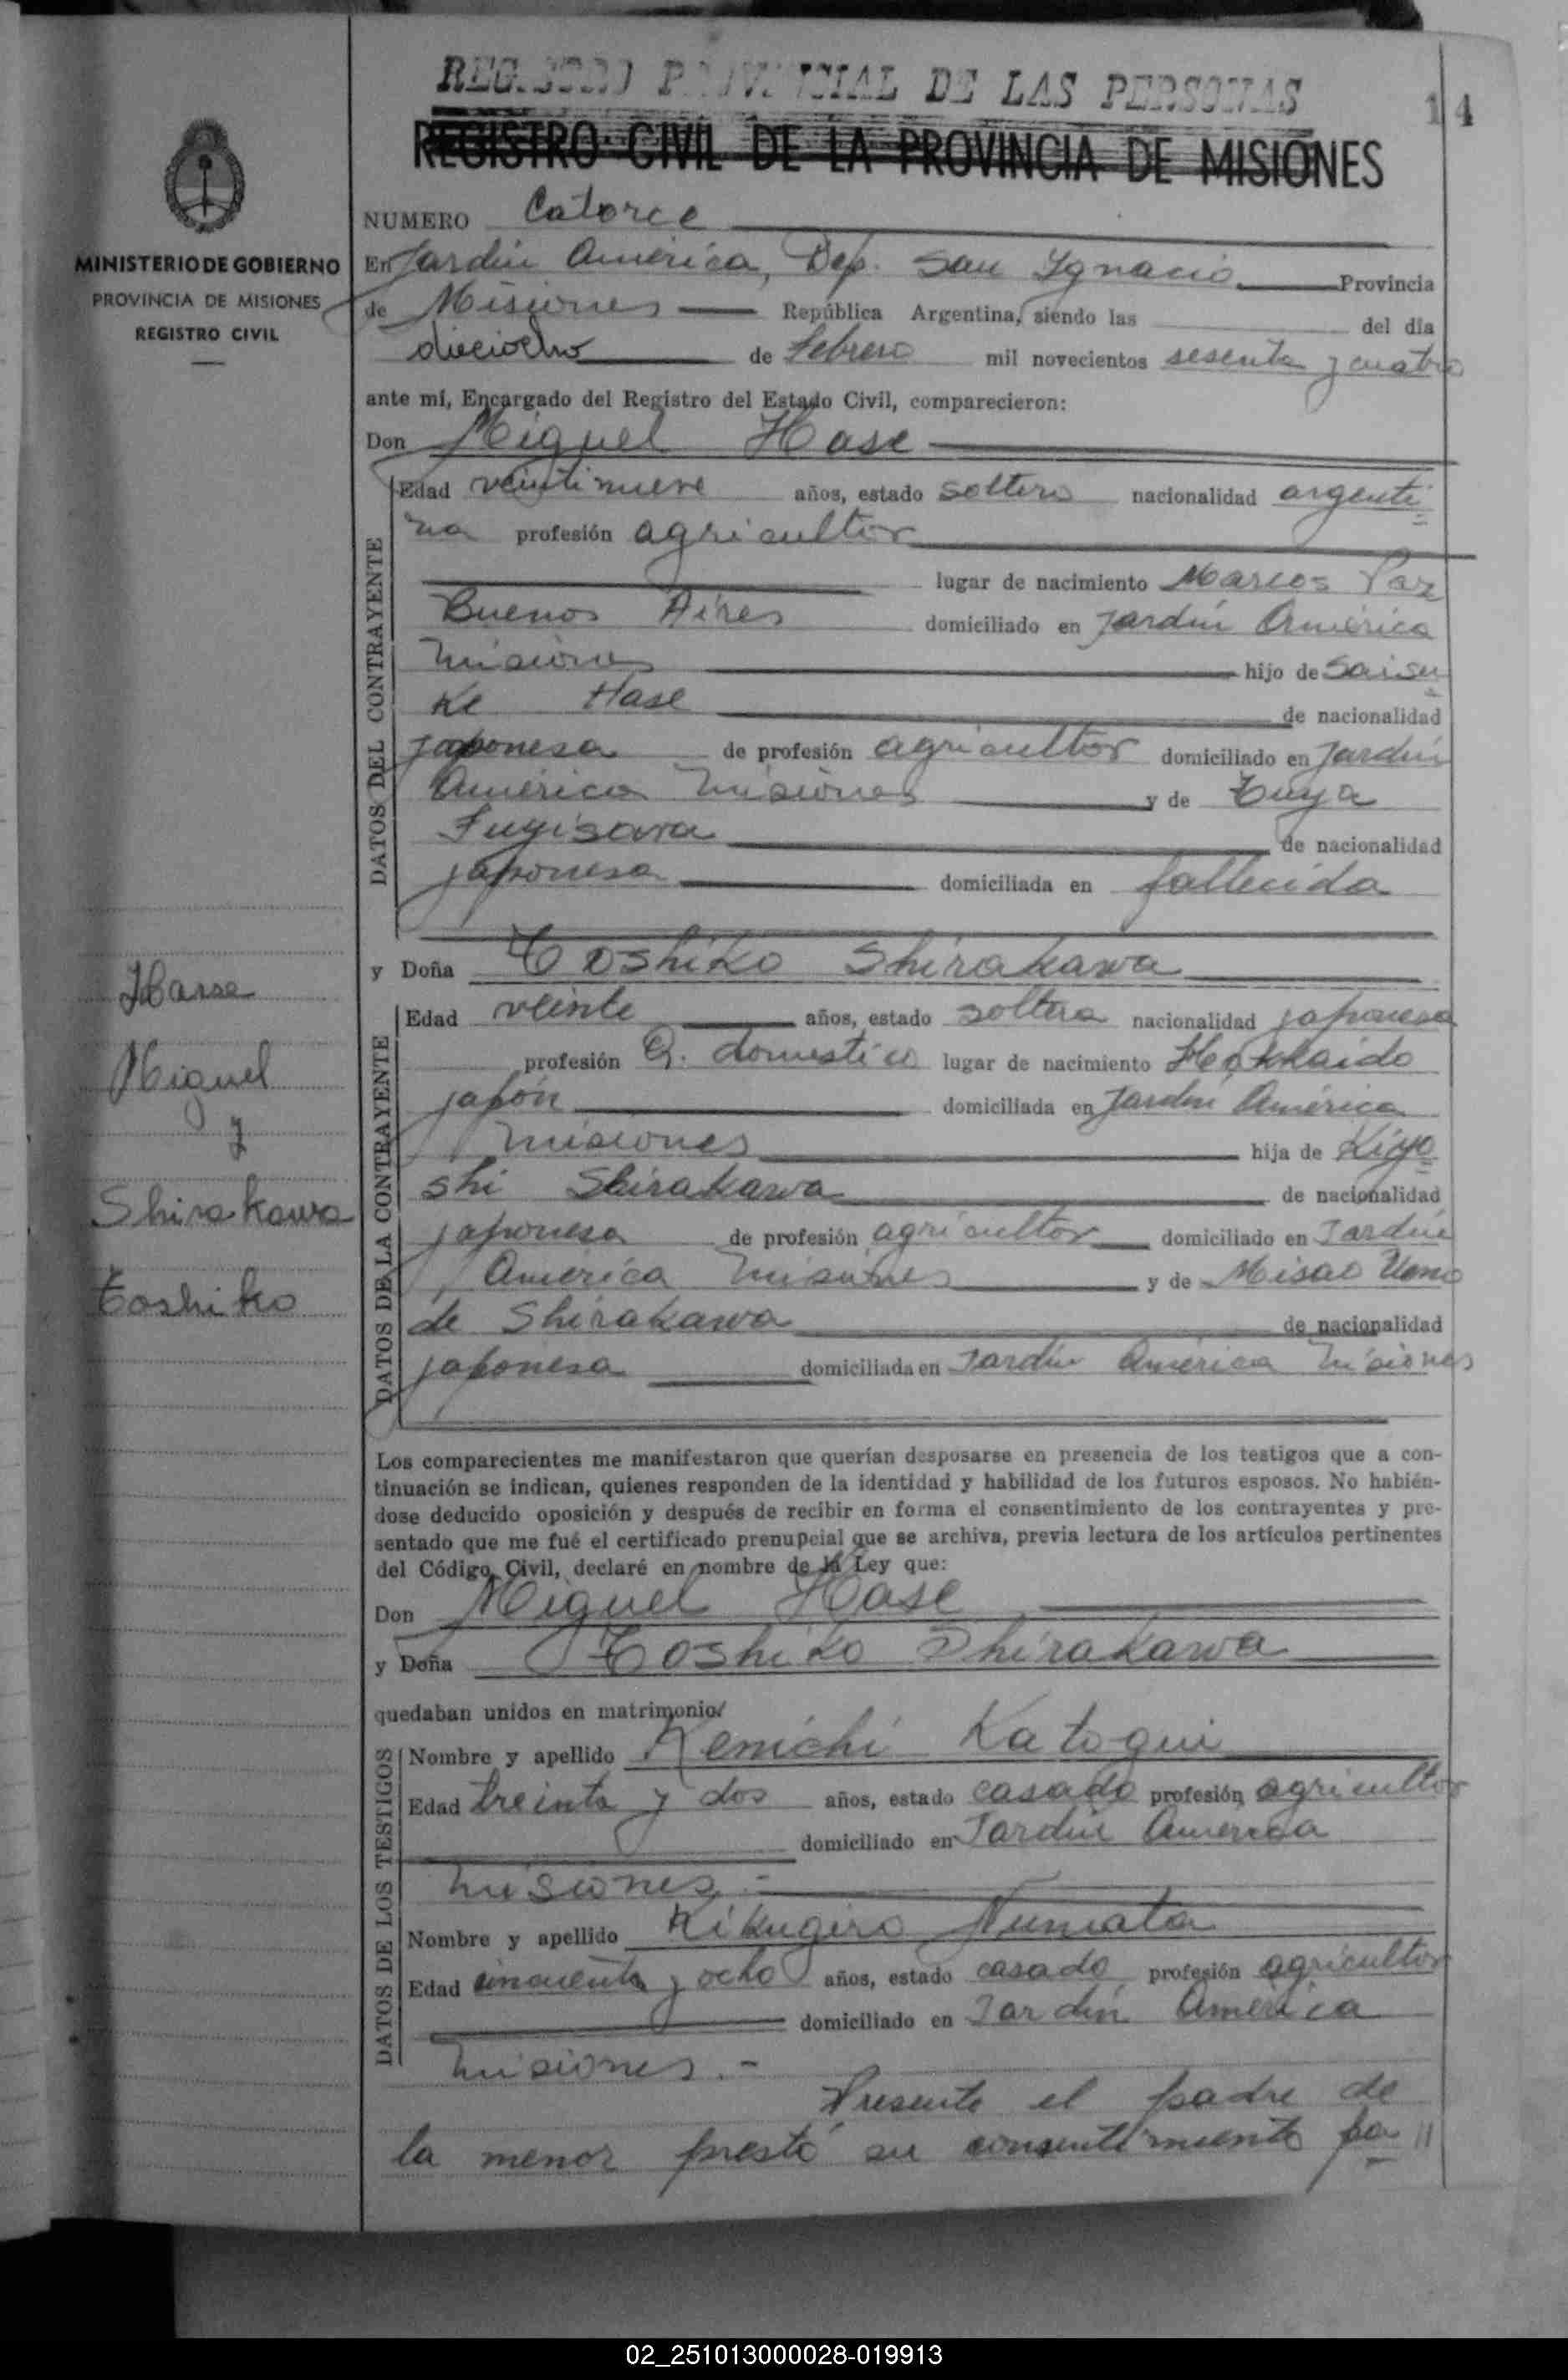 REGISTRO PROVINCIAL DE LAS PERSONAS
14
REGISTRO CIVIL DE LA PROVINCIA DE MISIONES
MINISTERIO DE GOBIERNO
PROVINCIA DE MISIONES
REGISTRO CIVIL
NUMERO Catorce
En Jardín América, Dep. San Ygnacio Provincia
de Misiones República Argentina, siendo las del día
dieciocho de febrero mil novecientos sesenta y cuatro
ante mí, Encargado del Registro del Estado Civil, comparecieron:
Don Miguel Hase
DATOS DEL CONTRAYENTE
Edad veintinueve años, estado soltero nacionalidad argenti
na profesión agricultor
lugar de nacimiento Marcos Paz
Buenos Aires domiciliado en Jardín América
Misiones hijo de Saisu
ke Hase de nacionalidad
japonesa de profesión agricultor domiciliado en Jardín
América Misiones y de Tuya
Fugisava de nacionalidad
japonesa domiciliada en fallecida
y Doña Toshiko Shirakawa
Hasse
Miguel
y
Shirakawa
Toshiko
DATOS DE LA CONTRAYENTE
Edad veinte años, estado soltera nacionalidad japonesa
profesión Q. domestico lugar de nacimiento Hokkaido
japón domiciliada en Jardín América
Misiones hija de Kiyo
shi Shirakawa de nacionalidad
japonesa de profesión agricultor domiciliado en Jardín
América Misiones y de Misao Ueno
de Shirakawa de nacionalidad
japonesa domiciliada en Jardín América Misiones
Los comparecientes me manifestaron que querían desposarse en presencia de los testigos que a con-
tinuación se indican, quienes responden de la identidad y habilidad de los futuros esposos. No habién-
dose deducido oposición y después de recibir en forma el consentimiento de los contrayentes y pre-
sentado que me fué el certificado prenupcial que se archiva, previa lectura de los artículos pertinentes
del Código Civil, declaré en nombre de la Ley que:
Don Miguel Hase
y Doña Toshiko Shirakawa
quedaban unidos en matrimonio
DATOS DE LOS TESTIGOS
Nombre y apellido Kenichi Katogui
Edad treinta y dos años, estado casado profesión agricultor
domiciliado en Jardín America
Misiones.-
Nombre y apellido Kikugiro Numata
Edad cincuenta y ocho años, estado casado profesión agricultor
domiciliado en Jardín América
Misiones.-
Presente el padre de
la menor prestó su consentimiento pa //
02_251013000028-019913